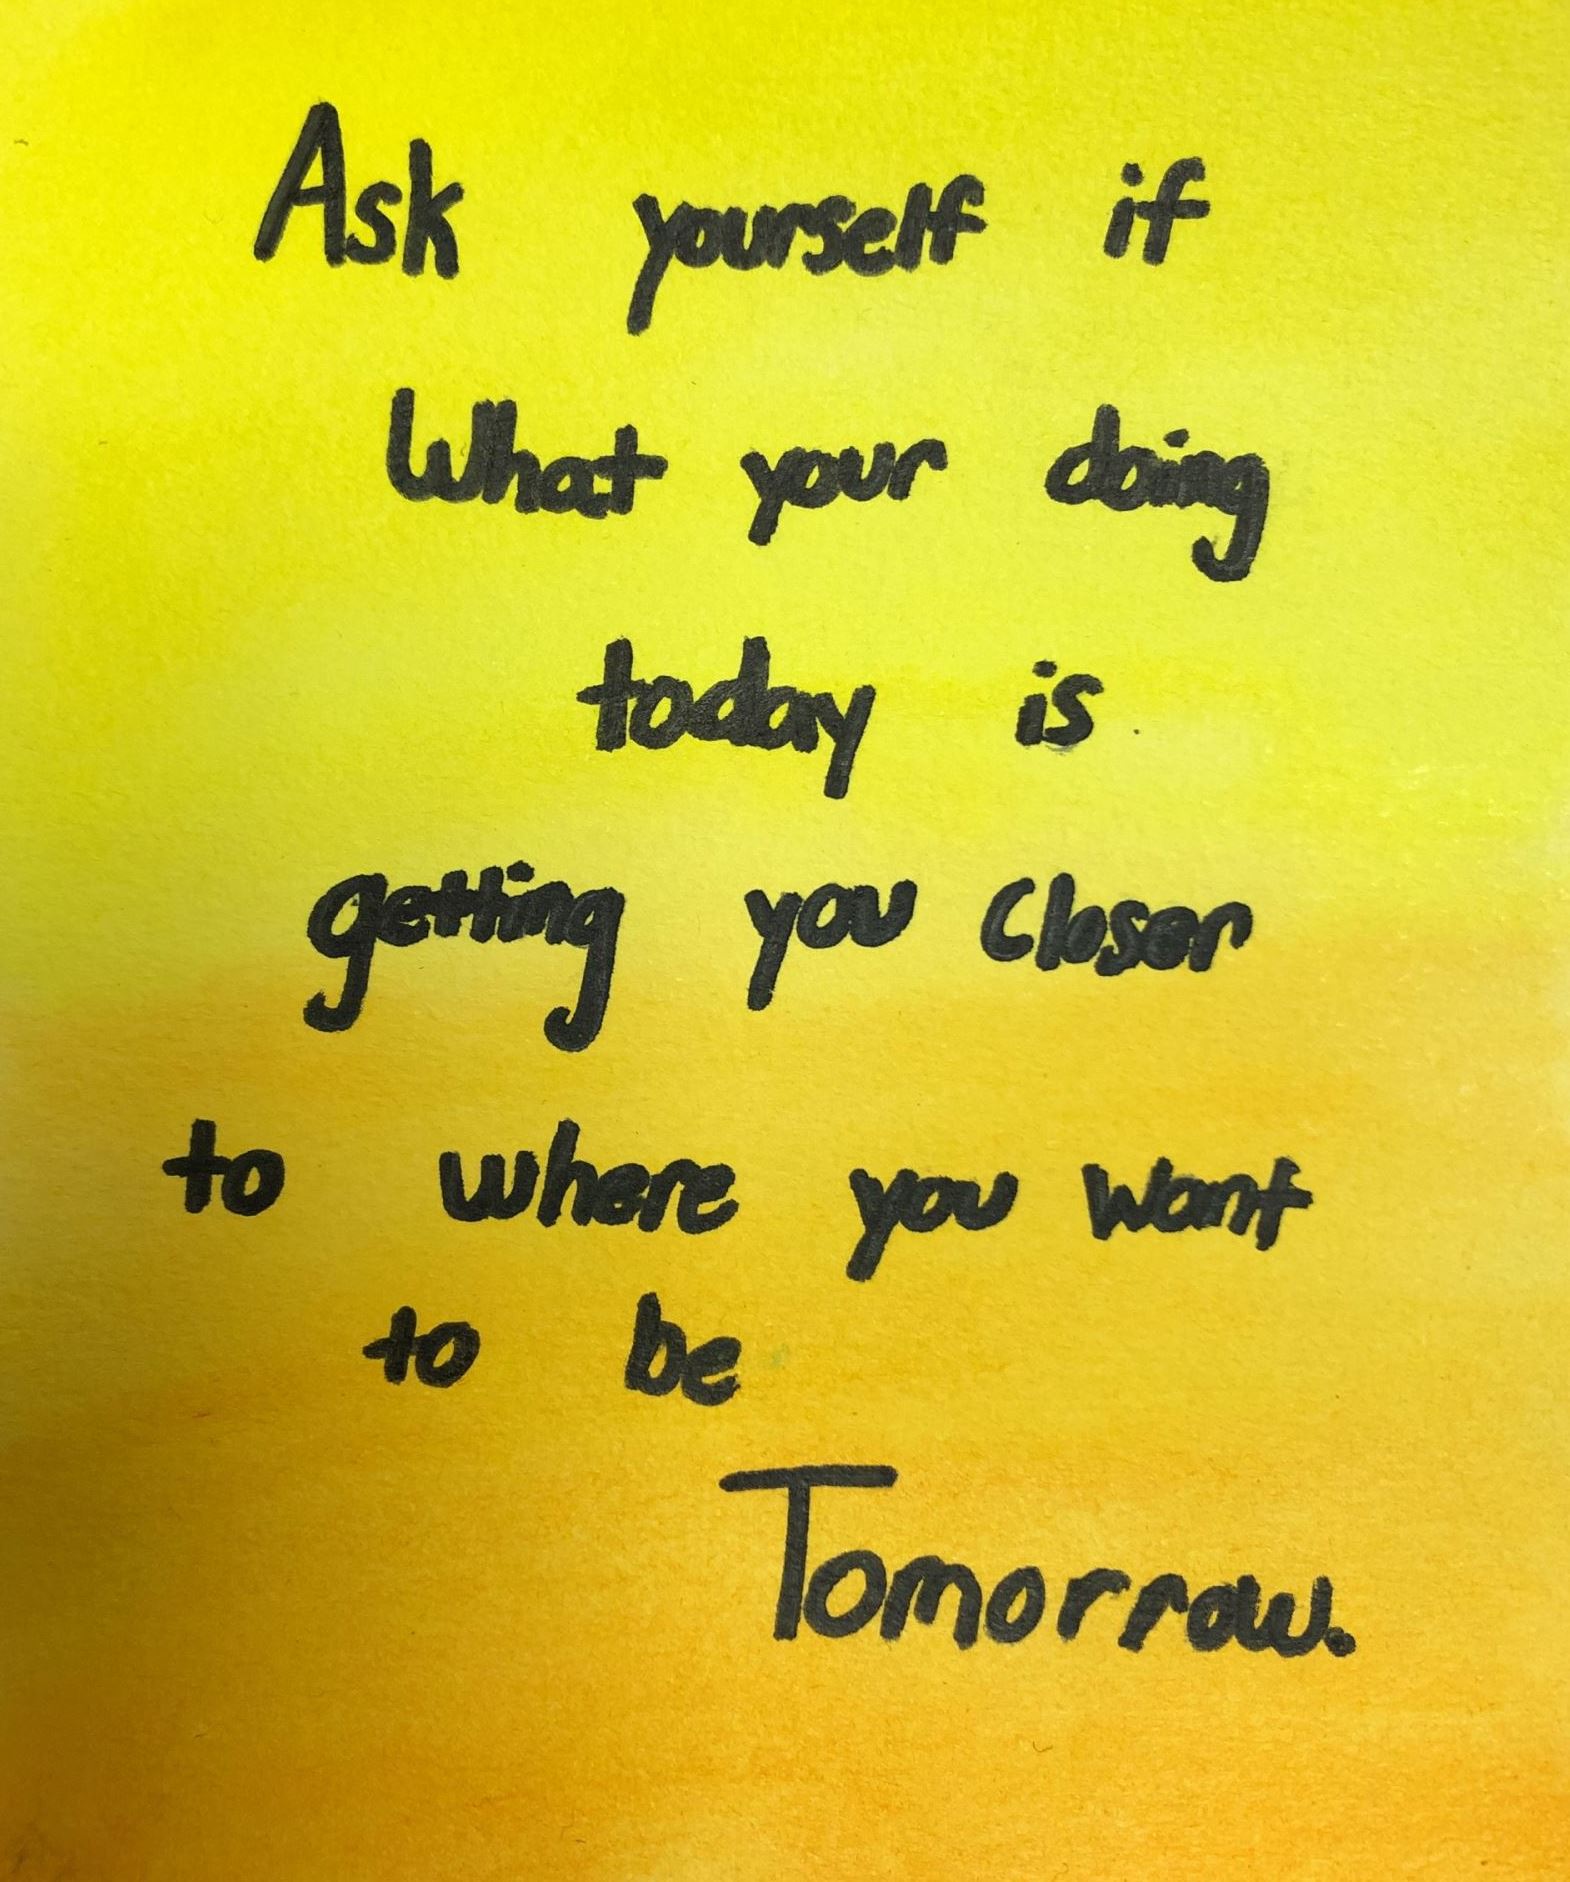 Ask yourself if
What your doing
today is
getting you closer
to where you want
to be
Tomorrow.